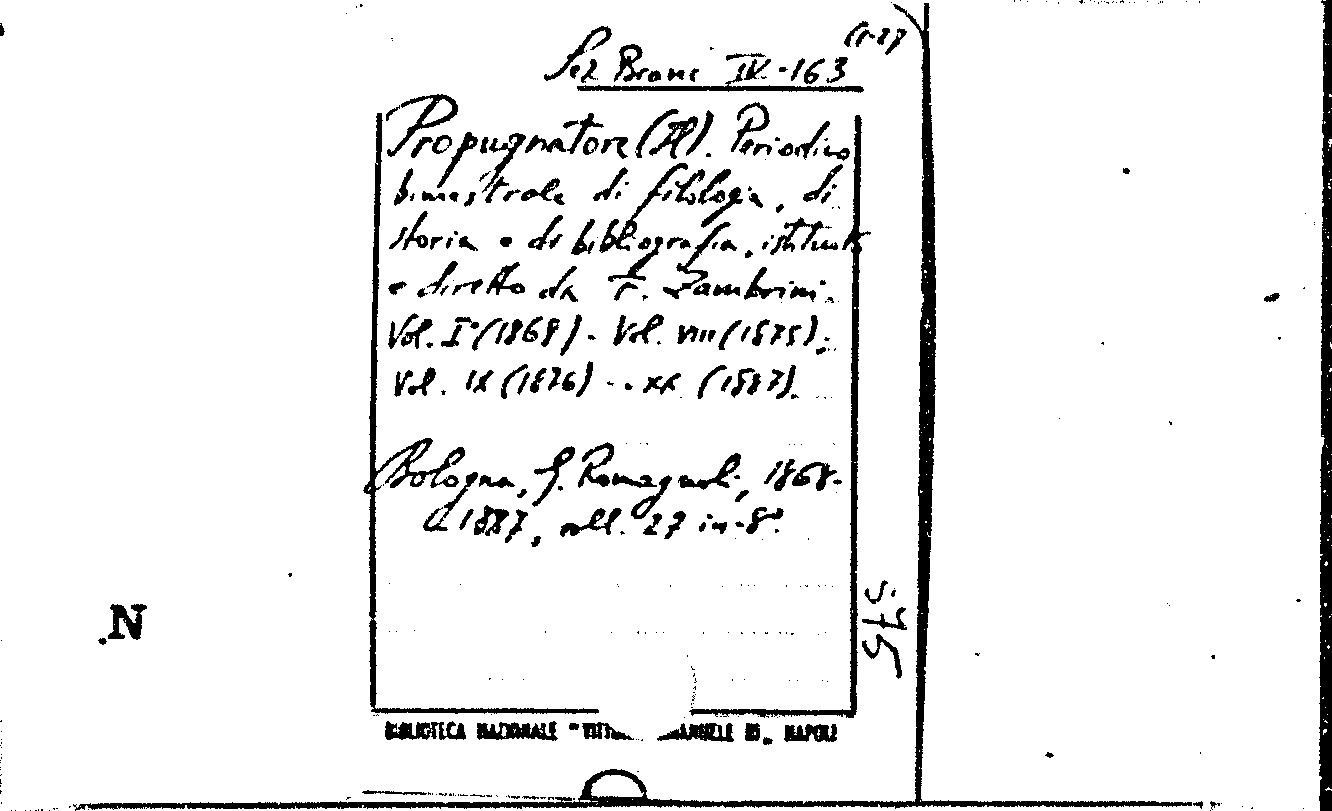 (1-27)
Sez Branc IV-163
Propugnatore (Il). Periodico
bimestrale di filologia, di
storia e di bibliografia, istituito
e diretto da F. Zambrini.
Vol. I°(1868) - Vol. VIII (1875);
Vol. IX (1876) - . XX (1887).
Bologna, G. Romagnoli, 1868-
a 1887, voll. 27 in-8°.
N
BIBLIOTECA NAZIONALE "VITTO ANUELE III„ NAPOLI